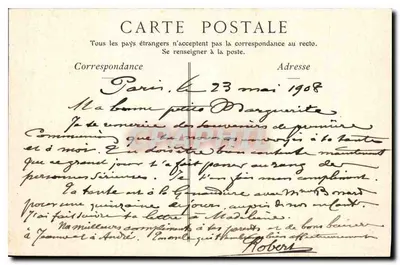 CARTE POSTALE
Tous les pays étrangers n'acceptent pas la correspondance au recto.
Se renseigner à la poste.
Correspondance Adresse
Paris, le 23 mai 1908
Ma bonne petite Marguerite
Je te remercie des souvenirs de première
Communion que tu envoyés à ta tante
et à moi. Tu dois être bien contente maintenant
que ce grand jour t'a fait passer au rang des
personnes sérieuses. Je t'en fais mon compliment.
Ta tante est à la avec Mme
pour une quinzaine de jours, auprès de nos
J'ai fait suivre ta lettre à Madeleine.
Nos meilleurs compliments à tes parents et de bons baisers
à Jeanne et à André.
Robert